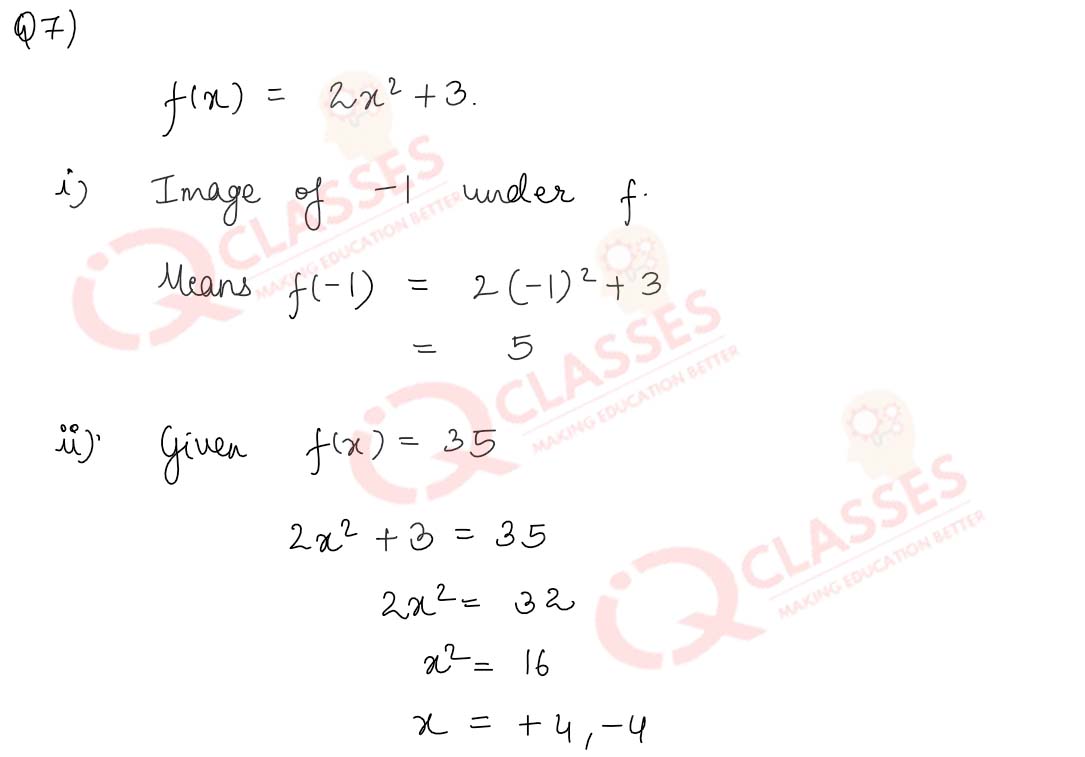 Q7)
f(x) = 2x² + 3.
i) Image of -1 under f.
Means f(-1) = 2(-1)² + 3
= 5
ii) Given f(x) = 35
2x² + 3 = 35
2x² = 32
x² = 16
x = +4, -4
IQ CLASSES
MAKING EDUCATION BETTER
IQ CLASSES
MAKING EDUCATION BETTER
IQ CLASSES
MAKING EDUCATION BETTER